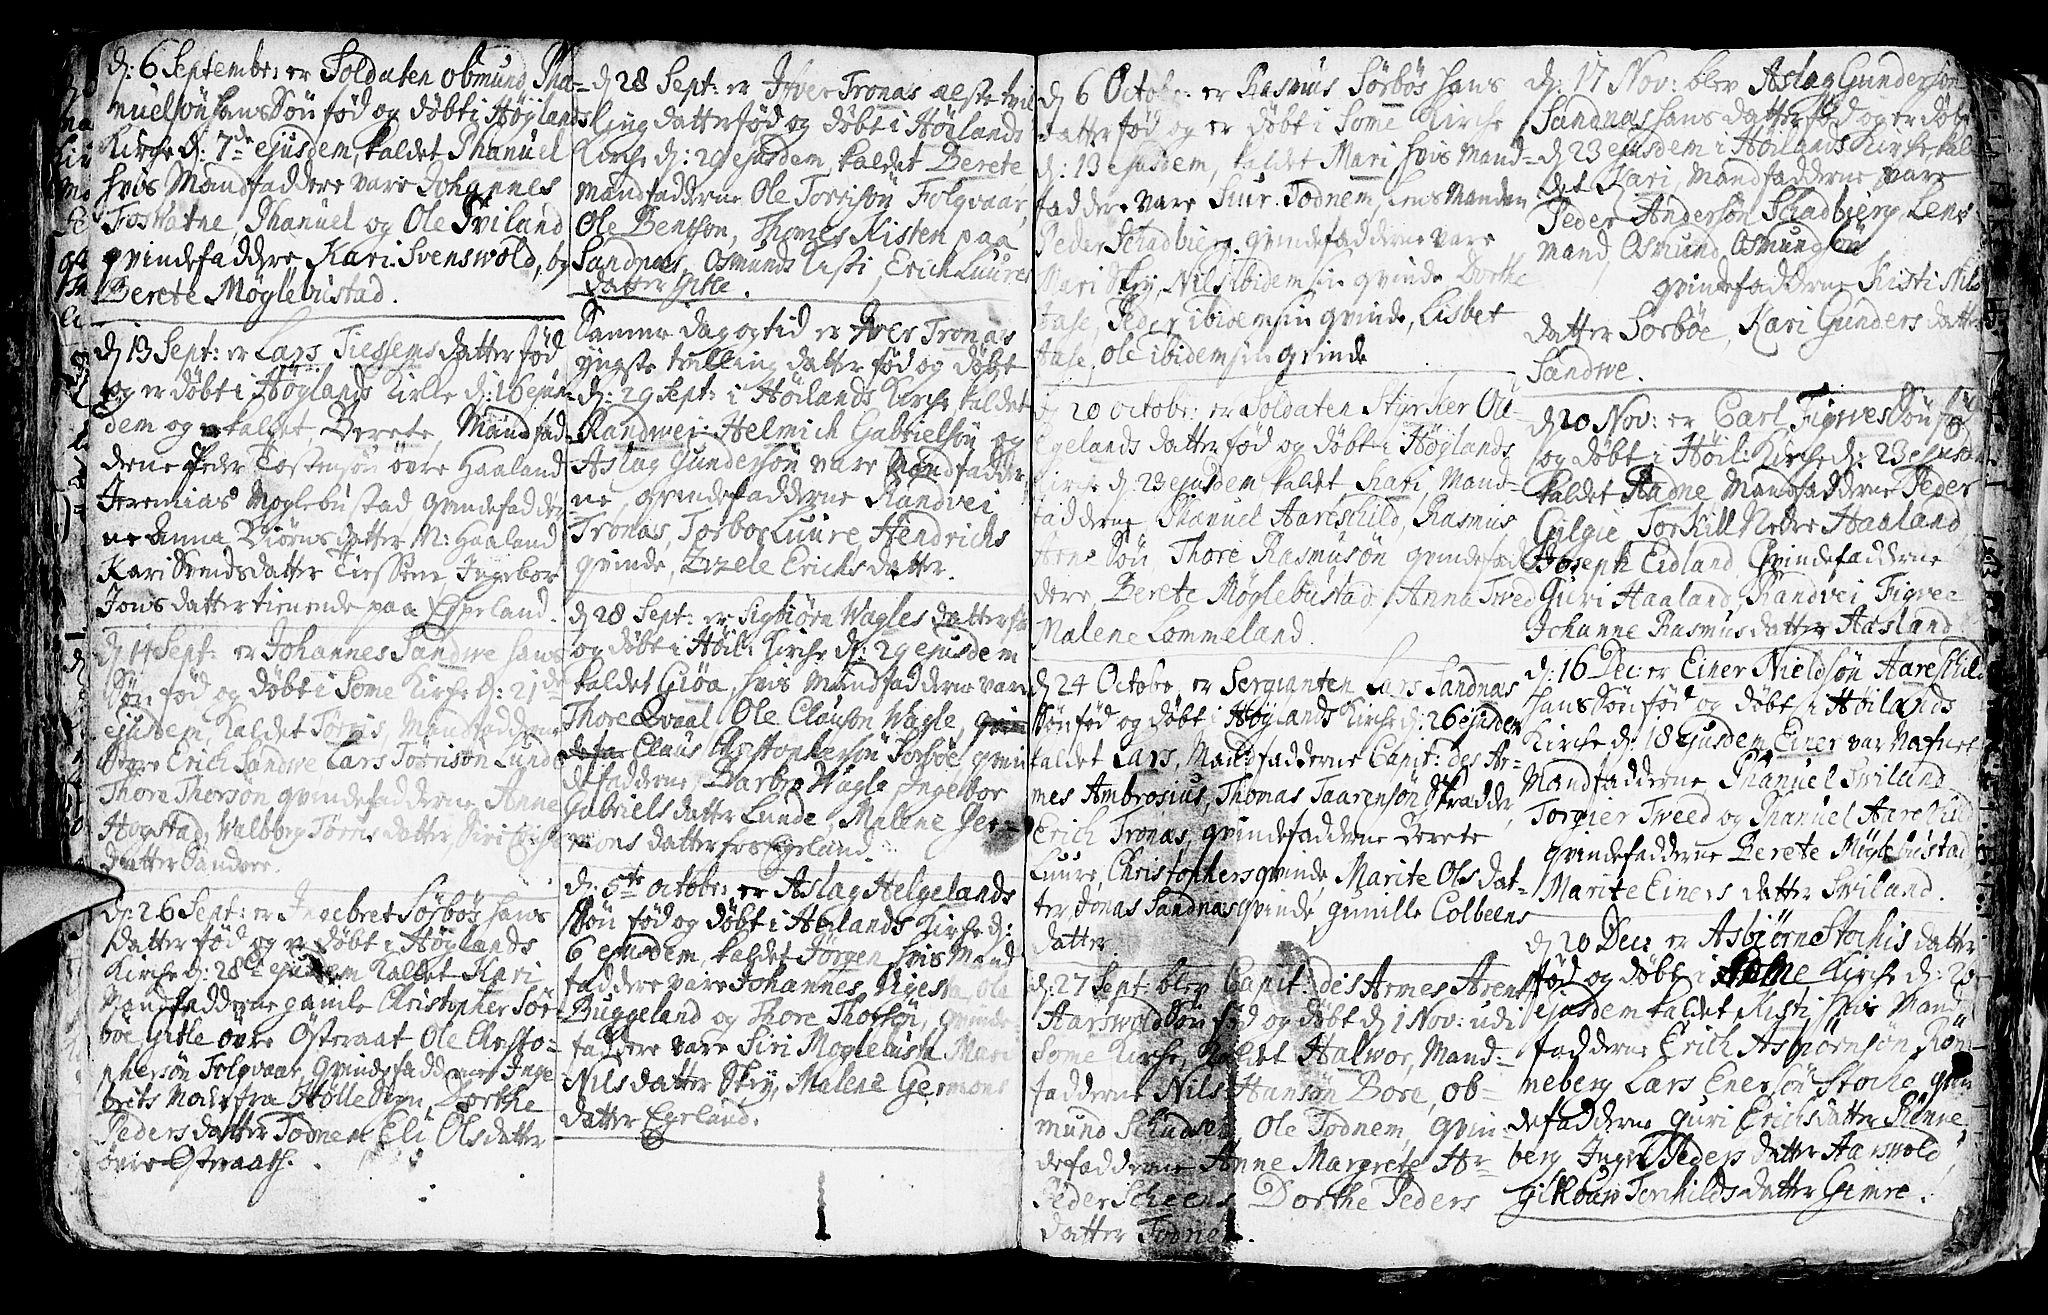 d: 6 Septembe: er Soldaten Obmund Pha-
nuelsøn hans Søn fød og døbt i Höjlands
Kirche d: 7de ejusdem, kaldet Phanuel
hvis Mandfaddere vare Johannes
Foswatne, Phanuel og Ole Sviland
qvindefaddere Kari Svenswold, og
Berete Møglebustad.
d 13 Sept: er Lars Tiessems datter fød
og er døbt i Höglands Kirke d: 16 ejus-
dem og er kaldet Berete, Mandfad
derne Peder Tostensøn övre Haaland
Jeremias Moglebustad, qvindefadder
ne Anna Biørnsdatter N: Haaland
Kari Svendsdatter Tiessem, Ingebor
Jonsdatter tienende paa Espeland.
d 14 Sept: er Johannes Sandwe hans
Søn fød og døbt i Some Kirke d: 21de
ejusdem, Kaldet Tørris, Mandfadderne
vare Erich Sandwe Lars Tørrisön Lunde
Thore Thorsøn qvindefadderne, Anne
Hogstad, Walborg Tørrisdatter, Siri Erichs
datter Sandwe.
d: 26 Sept: er Ingebret Sörbös hans
datter fød og er døbt i Höglands
Kirche d: 28de ejusdem kaldet Kari
Mandfadderne gamle Christopher Sör-
boe Gitle övre Österaat Ole Christo-
phersøn Folqvaar, Qvindefadderne Inge-
brits Moder fra Hølle Sogn, Dorthe
Pedersdatter Todnem Eli Olsdatter
övre Østraath.
d 28 Sept: er Iver Tronas ælste tvil
ling datter fød og døbt i Höilands
Kirche d: 29 ejusdem, kaldet Berete
mandfadderne Ole Torrisön Folqvaar,
Ole Bentsøn, Thomes Kisten paa
Sandnæs, Osmunds Kisti, Erich Luures
datter Gitle.
Samme dag og tid er Iver Tronas
yngste tvilling datter fød og døbt
d: 29 Sept: i Höilands Kirche kaldet
Randwei: Helmich Gabrielsön og
Aslag Gundersøn vare Mandfadder-
ne, qvindefadderne Randvei
Tronas, Torbor Luure, Hendrichs
qvinde, Zizele Erichsdatter.
d 28 Sept: er Sigbiörn Wagles datter fød
og døbt i Höil: Kirche d: 29 ejusdem
kaldet Giöa, hvis Mandfadderne vare
Thore Qvaal Ole Clauson Wagle, qvin
defa: Claus Christophersøn Sørboe, qvin
defadderne, Barbro Wagle, Ingebor
Gabrielsdatter Lunde, Malene Ger-
mons datter fra Egeland.
d: 5te Octobe: er Aslag Helgelands
Søn fød og døbt i Höilands Kirche d:
6 ejusdem, kaldet Jørgen hvis Mand
faddere vare Johannes Uigesta, Ole
Buggeland og Thore Thorsøn, qvinde-
faddere vare Siri Moglebust Mari
Nilsdatter Skry, Malene Germons
datter Egeland.
d 6 Octobe: er Rasmus Sörbös hans
datter fød og er døbt i Some Kirche
d: 13 ejusdem, kaldet Mari hvis Mand-
faddere vare Siur Todnem, Lensmanden
Peder Schadbierg, qvindefadderne vare
Mari Skry, Nils ibidem sin qvinde Dorthe
Aase, Peder ibidem sin qvinde, Lisbet
Aase, Ole ibidem sin qvinde
d 20 Octobe: er Soldaten Styrcher Ou-
Egelands datter fød og døbt i Höglands
Kirche d: 23 ejusdem kaldet Kari, Mand-
fadderne Phanuel Aareskild, Rasmus
Arne Søn, Thore Rasmusøn qvindefad
dere Berete Møglebustad, Anna Tved
Malene Lommeland.
d 24 Octobe er Sergianten Lars Sandnas
Søn fød og døbt i Höylands Kirche d: 26 ejusdem
kaldet Lars, Mandfadderne Capit: des Ar-
mes Ambrosius, Thomas Taarensøn Skradder,
Erich Tronas, qvindefadderne Berete
Luure, Christophers qvinde, Marite Olsdat-
ter Jonas Sandnas qvinde, gunille Colbeens
datter
d: 27 Sept: blev Capit: des Armes Arent
Aarswold Søn fød og døbt d 1 Nov: udi
Some Kirche, kaldet Halwor, Mand-
fadderne Nils Hansøn Bore, Ob-
mund Schadberg Ole Todnem, Qvin-
defadderne Anne Margrete Ar-
Peder Scheens Dorthe Peders
datter Todnem.
d: 17 Nov: blev Aslag Gundersøn
Sandnas hans datter fød og er døbt
d 23 ejusdem i Höilands Kirche, kal
det Kari, Mandfadderne vare
Peder Andersøn Schadbierg, Lens-
mand, Osmund Osmundsøn
qvindefadderne Kisti Nils
datter Sorböe, Kari Gunders datter
Sandwe.
d 20 Nov: er Carl Figvesøn Søn fød
og døbt i Höil: Kirche d: 23 ejusdem
kaldet Aadne Mandfadderne Peder
Gilgie Torkild Nedre Haaland
Joseph Eidland Qvindefadderne
Guri Haaland, Randvei Figvee
Johanne Rasmusdatter Aasland
d: 16 Dec: er Einer Nieldsön Aareskild
hans Søn fød og døbt i Höilands
Kirche d: 18 ejusdem, Einer var Nafnet
Mandfadderne Phanuel Sviland
Torgier Treed og Phanuel Aareskild
qvindefadderne Berete Möglebustad,
Marite Einers datter Sviland.
d 20 Dec: er Asbiørne Stochis datter
fød og døbt i Some Kirche d: 2
ejusdem kaldet Kisti hvis Mand
fadderne Erich Asbiørnsøn Rön-
neberg Lars Enersøn Stoche, qvin
defadderne Guri Erichsdatter Rönne
berg, Inger Peders datter Aarswold,
Gitlour Torchildsdatter Gimre.